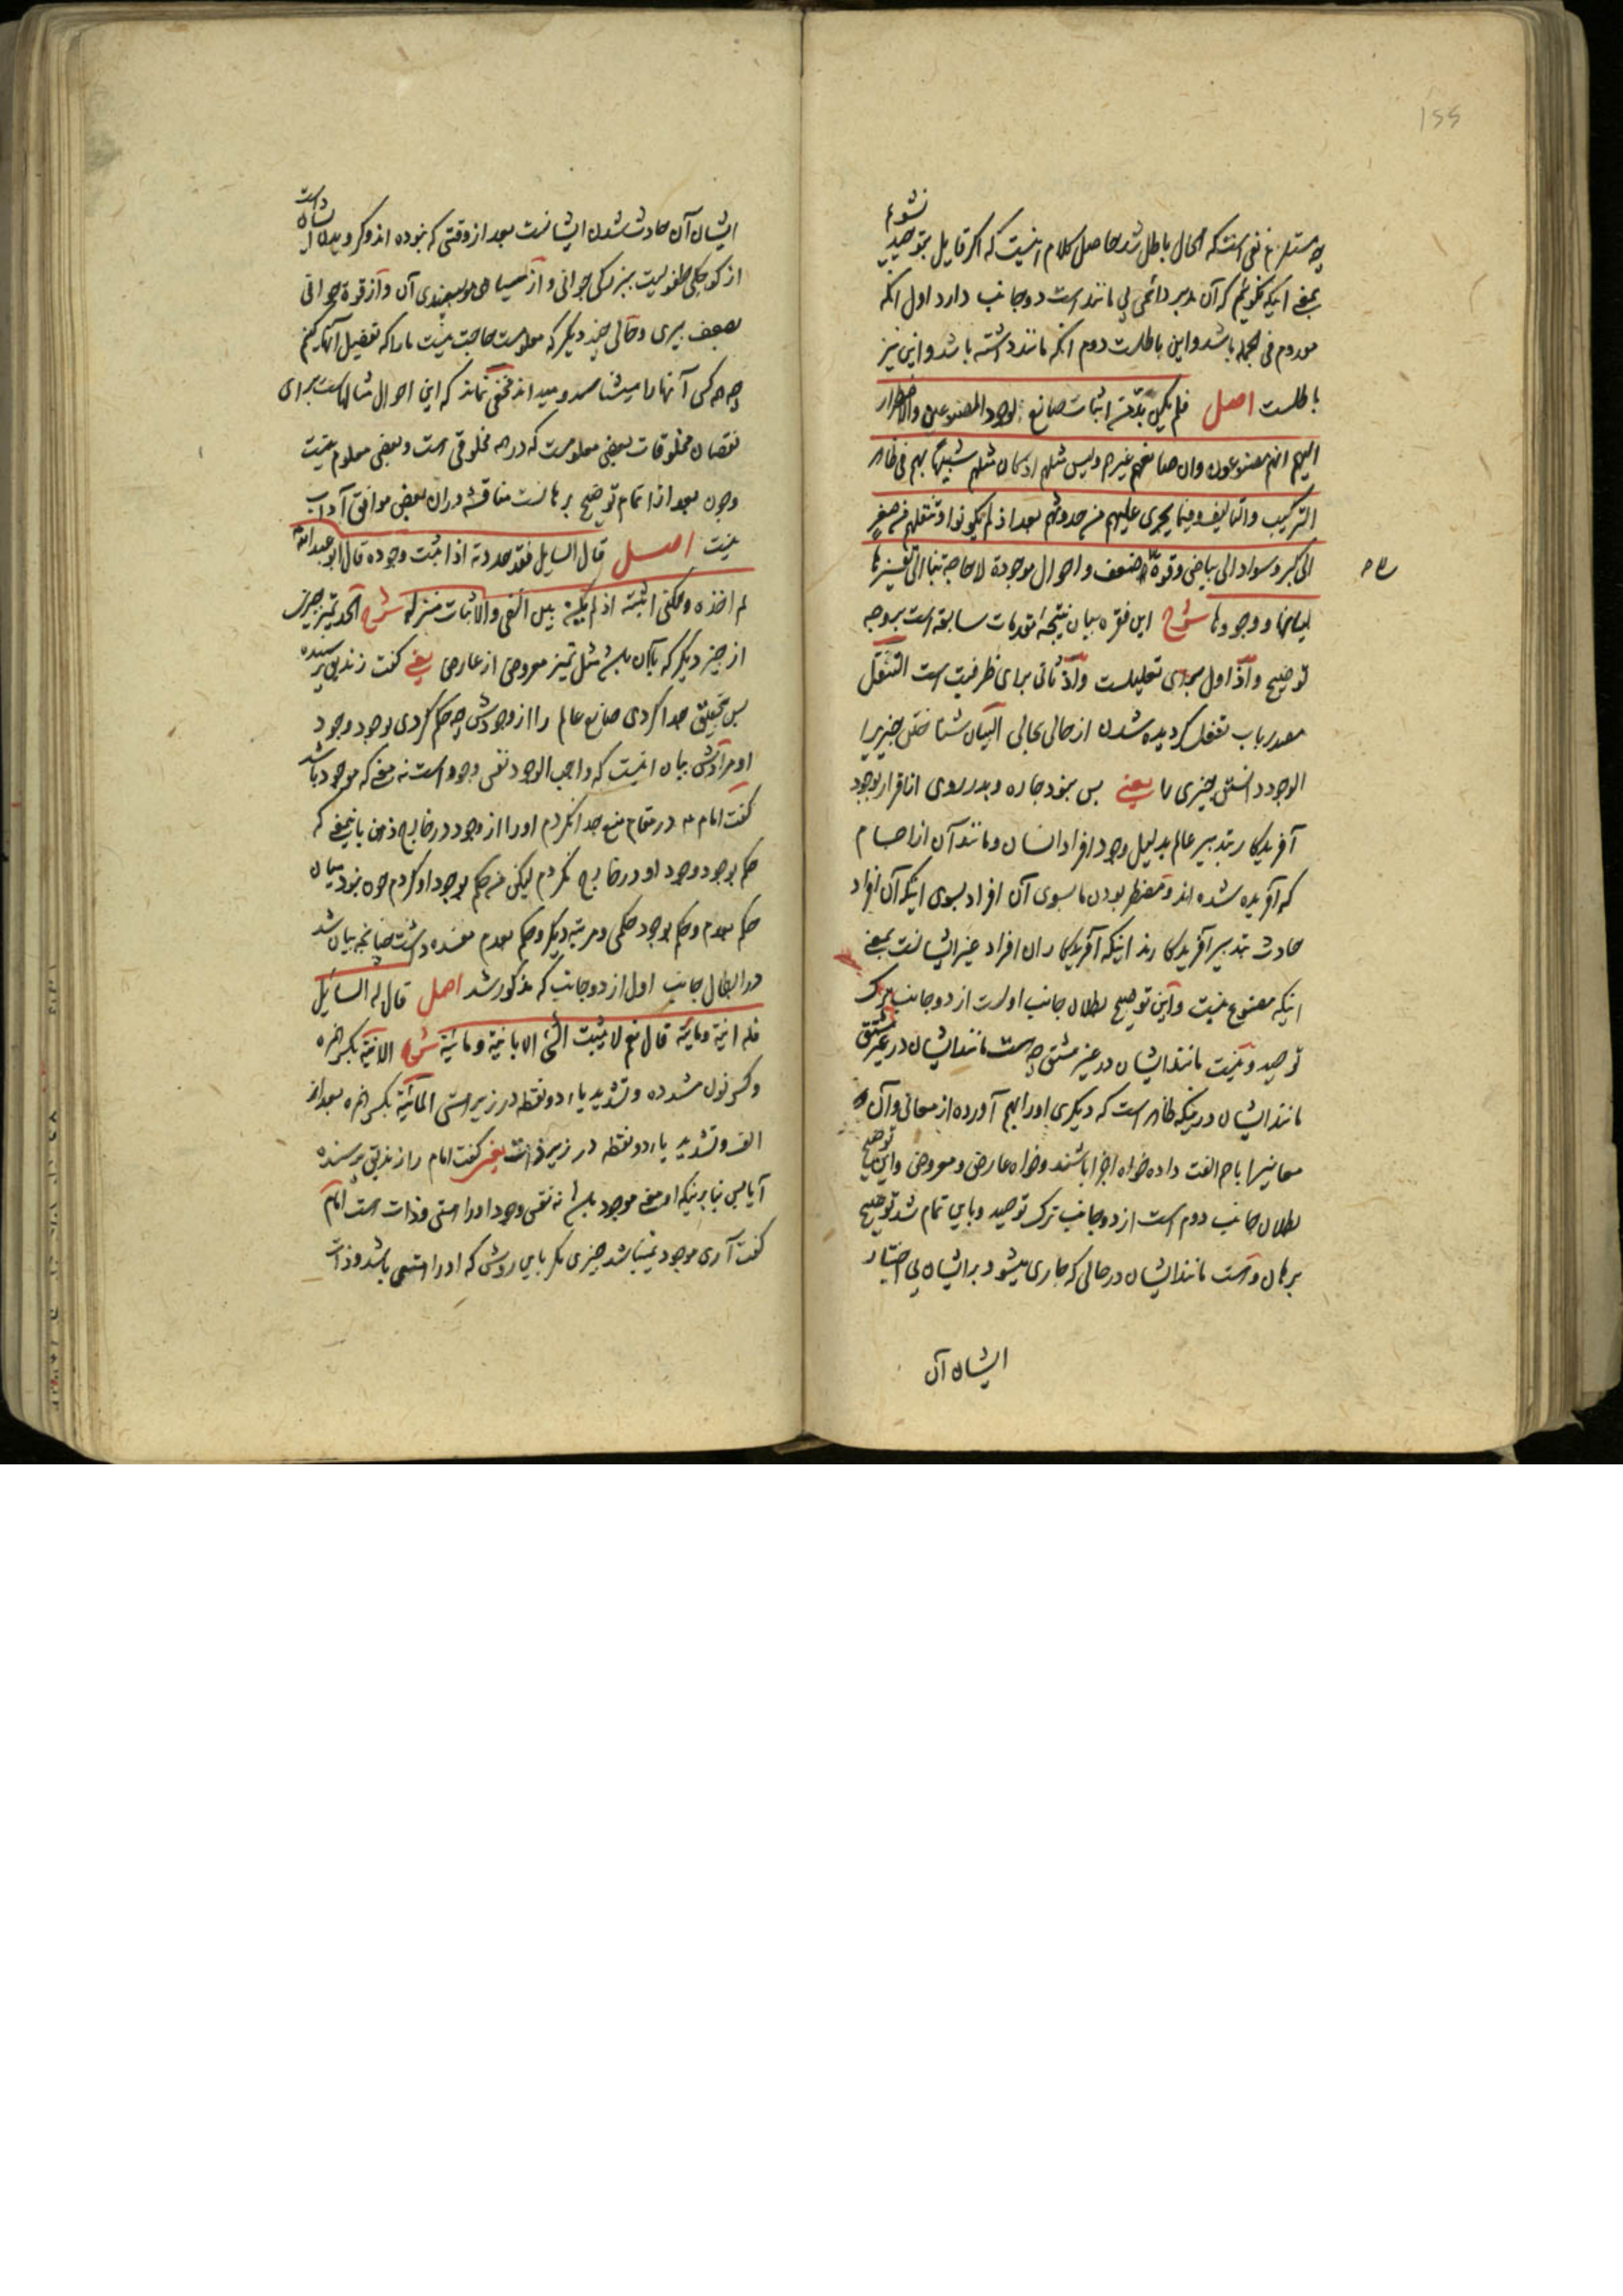 155
نشویم
چه مستلزم نفی است که الحال باطل شد حاصل کلام اینست که اگر قایل بتوحید
بمعنی اینکه نگوئیم که آن مدبر دائمی بی مانند است دو جانب دارد اول آنکه
معدوم فی الجمله باشد و این باطلست دوم آنکه مانند داشته باشد و این نیز
باطلست اصل فلم یکن بدّ من اثبات صانع لوجود المصنوعین والاضطرار
الیهم انهم مصنوعون وان صانعهم غیرهم ولیس مثلهم اذ کان مثلهم شبیهًا بهم فی ظاهر
الترکیب والتالیف وفیما یجری علیهم من حدوثهم بعد اذ لم یکونوا وتنقلهم من صغر
الی کبر وسواد الی بیاض وقوة الی ضعف واحوال موجودة لا حاجة بنا الی تفسیرها
لبیانها ووجودها شرح این فقره بیان نتیجه مقدمات سابقه است بروجه
توضیح و اذ اول برای تعلیلست و اذ ثانی برای ظرفیت است التنقّل
مصدر باب تفعل گردیده شدن از حالی بحالی البیان شناختن چیزیرا
الوجود دانستن چیزی را یعنی پس نبود چاره و بدر روی از اقرار بوجود
آفریدکار بتدبیر عالم بدلیل وجود افراد انسان و مانند آن از اجسام
که آفریده شده اند و مضطر بودن ما بسوی آن افراد بسوی اینکه آن افراد
حادث بتدبیر آفریدکارند اینکه آفریدکار آن افراد غیر ایشانست بمعنی
اینکه مصنوع نیست و این توضیح بطلان جانب اولست از دو جانب ترک
توحید و نیست مانند ایشان در غیر مشتق چه هست مانند ایشان در غیر مشتق
مانند ایشان در اینکه ظاهر است که دیکری اورا بهم آورده از معانی و آن
معانیرا باهم الفت داده خواه اجزا باشند و خواه عارض و معروض و این توضیح
بطلان جانب دوم است از دو جانب ترک توحید و باین تمام شد توضیح
برهان و است مانند ایشان در حالی که جاری میشود بر ایشان بی اختیار
ایشان آن
ایشان آن حادث شدن ایشانست بعد از وقتی که نبوده اند و کردیدن ایشان است
از کوچکی طفولیت ببزرکی جوانی و از سیاهی مو بسفیدی آن و از قوة جوانی
بضعف پیری و حالی چند دیکر که معلومست حاجت نیست ما را که تفصیل آنها کنیم
چه هر کس آنها را میشناسد و میداند مخفی نماند که این احوال مثالهاست برای
نقصان مخلوقات بعضی معلومست که در هر مخلوقی است و بعضی معلوم نیست
و چون بعد از اتمام توضیح برهانست مناقشه در آن بعض موافق آداب
نیست اصل قال السایل فقد حددته اذ اثبتّ وجوده قال ابو عبدالله
لم احده ولکنی اثبته اذ لم یکن بین النفی والاثبات منزلة شرح الحد تمیز چیزی
از چیز دیکر که با آن باشد مثل تمیز معروض از عارض یعنی گفت زندیق پرسنده
پس بتحقیق جدا کردی صانع عالم را از وجودش چه حکم کردی بوجود وجود
او مرادش بیان اینست که واجب الوجود نفس وجود است نه معنی که موجود باشد
گفت امام م در مقام منع جدا نکردم اورا از وجود در خارج ذهن باینمعنی که
حکم بوجود وجود او در خارج نکردم لیکن من حکم بوجود او کردم چون نبود میان
حکم بعدم و حکم بوجود حکمی و مرتبه دیکر و حکم بعدم مفسده داشت چنانچه بیان شد
در ابطال جانب اول از دو جانب که مذکور شد اصل قال له السائل
فله انیّة ومائیّة قال نعم لا یثبت الشئ الا بانیّة ومائیّة شرح الانّیّة بکسر همزه
و کسر نون مشدده و تشدید یاء دو نقطه در زیر هستی المائیّة بکسر همزه بعد از
الف و تشدید یاء دو نقطه در زیر ذات یعنی گفت امام را زندیق پرسنده
آیا پس بنابر اینکه او معنی موجود باشد نه نفس وجود اورا هستی و ذات هست امام
گفت آری موجود نمیباشد چیزی مکر باین روش که اورا هستی باشد و ذات